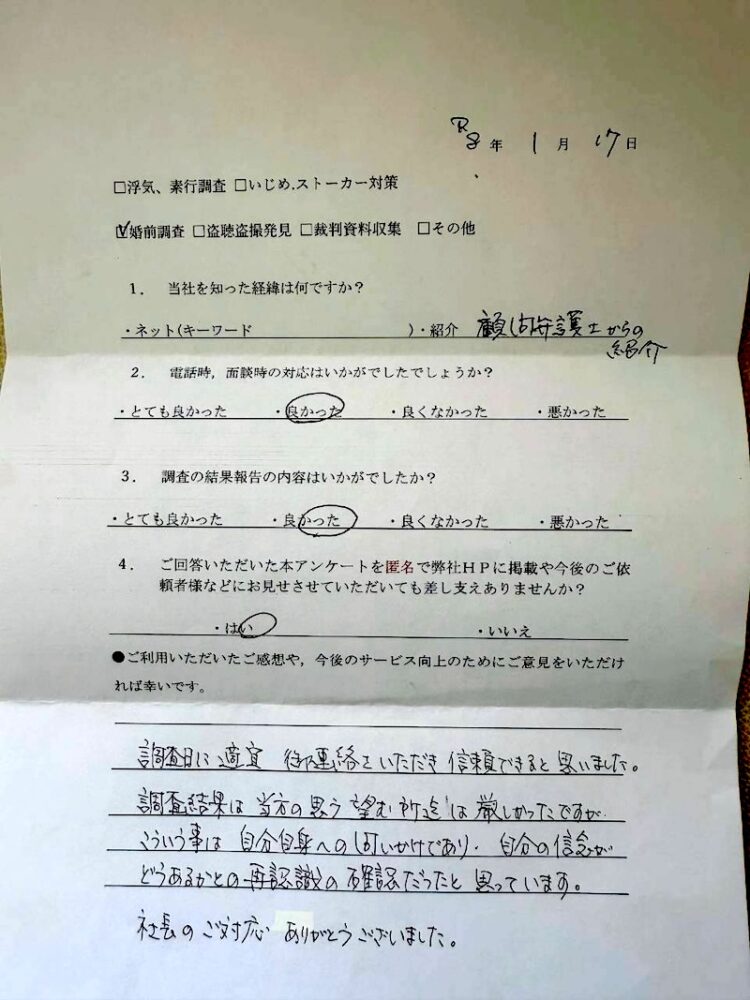 R8年 1月 17日
□浮気、素行調査 □いじめ.ストーカー対策
☑婚前調査 □盗聴盗撮発見 □裁判資料収集 □その他
1. 当社を知った経緯は何ですか？
・ネット(キーワード )・紹介 顧問弁護士からの
紹介
2. 電話時，面談時の対応はいかがでしたでしょうか？
・とても良かった ・良かった ・良くなかった ・悪かった
3. 調査の結果報告の内容はいかがでしたか？
・とても良かった ・良かった ・良くなかった ・悪かった
4. ご回答いただいた本アンケートを匿名で弊社ＨＰに掲載や今後のご依
頼者様などにお見せさせていただいても差し支えありませんか？
・はい ・いいえ
●ご利用いただいたご感想や，今後のサービス向上のためにご意見をいただけ
れば幸いです。
調査日に適宜 御連絡をいただき 信頼できると思いました。
調査結果は 当方の思う 望む所迄は 厳しかったですが
こういう事は 自分自身への問いかけであり、自分の信念が
どうあるかとの再認識の確認だったと思っています。
社長のご対応 ありがとうございました。